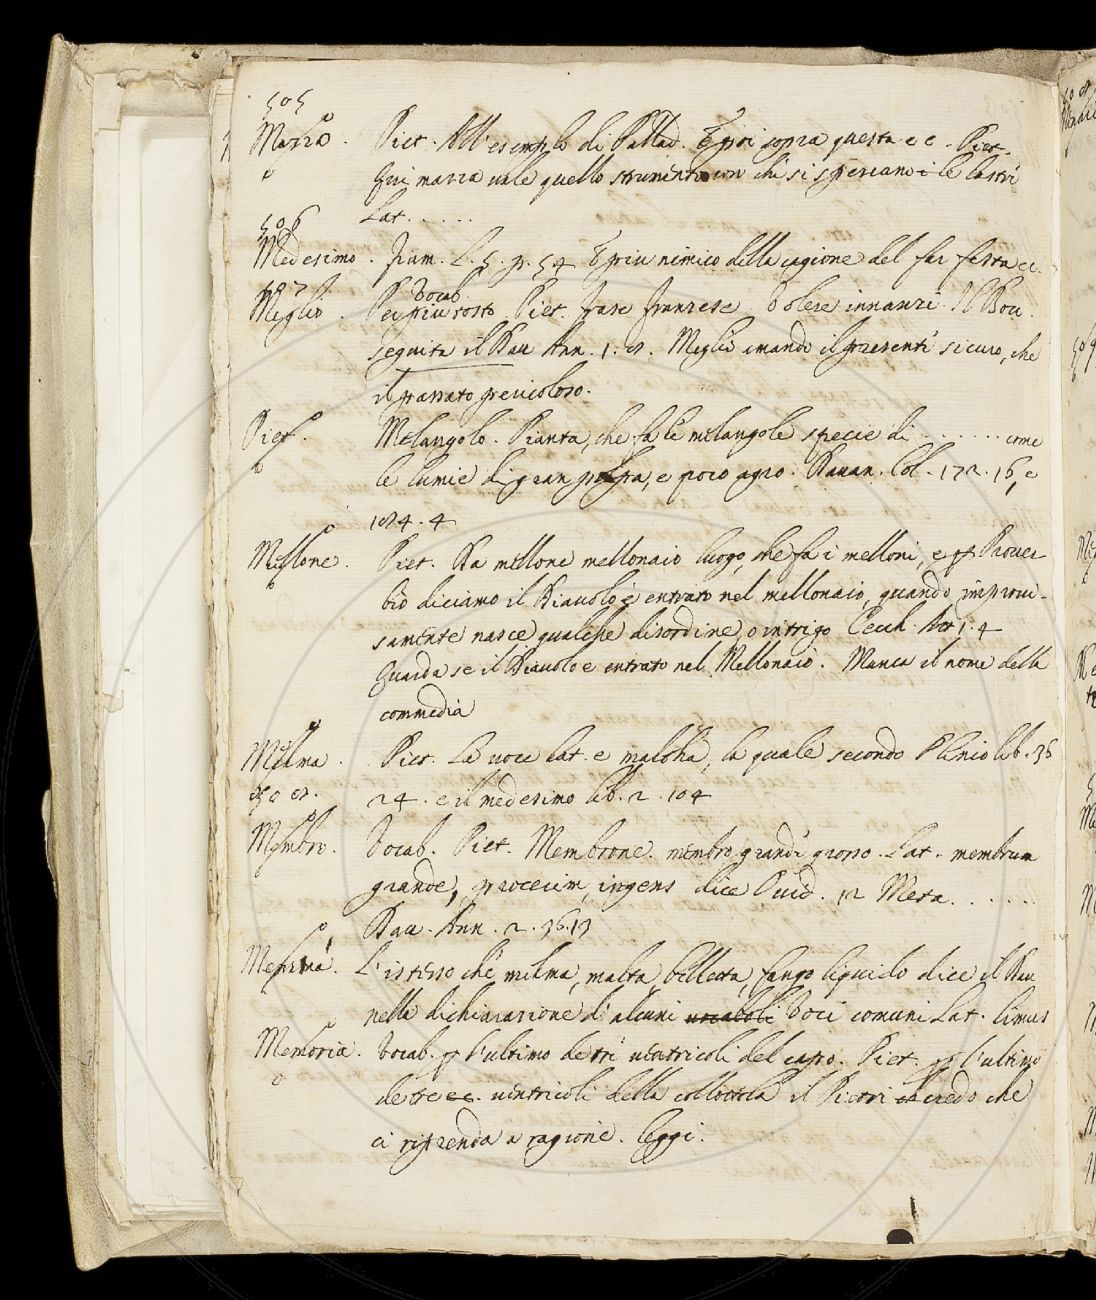 505
Mazza. Piet. All'esemplo di Pallad. E poi sopra questa ec. Piet.
Qui mazza vale quello strumento con che si spezzano le lastre
Lat. . . . .
506
Medesimo. Fiam. L. 5. p. 54 E più nimico della cagione del far festa ec.
507 Vocab.
Meglio. Per più tosto. Piet. frase franzese Volere innanzi. Il Bocc.
seguita il Dav. Ann. 1. Meglio amando il presente sicuro, che
il passato pericoloso.
Piet. Melangolo. Pianta, che fa le melangole specie di . . . . . . . come
le lumie di gran polpa, e poco agro. Davan. Col. 172. 16, e
184. 4
Mellone. Piet. Da mellone mellonaio luogo, che fa i melloni, e per Prover-
bio diciamo il Diavolo è entrato nel mellonaio, quando improvi-
samente nasce qualche disordine, o intrigo Cecch. 1. 4
Guarda se il Diavolo e entrato nel Mellonaio. Manca il nome della
commedia
Melma. Piet. La voce lat. e maltha, la quale secondo Plinio lib. 36
24. e il medesimo lib. 2. 104
508.
Membro. Vocab. Piet. Membrone. membro grande grosso. Lat. membrum
grande, procerum, ingens dice Ovid. 12 Meta. . . . . . .
Dav. Ann. 2. 36.13
Memma. L'istesso che melma, malta, belletta, fango liquido dice il Dav.
nella dichiarazione d'alcuni vocaboli Voci comuni Lat. limus
Memoria. Vocab. per l'ultimo de tre ventricoli del capo. Piet. per l'ultimo
de tre ec. ventricoli della collottola il Pietri credo che
ci riprenda a ragione. leggi.